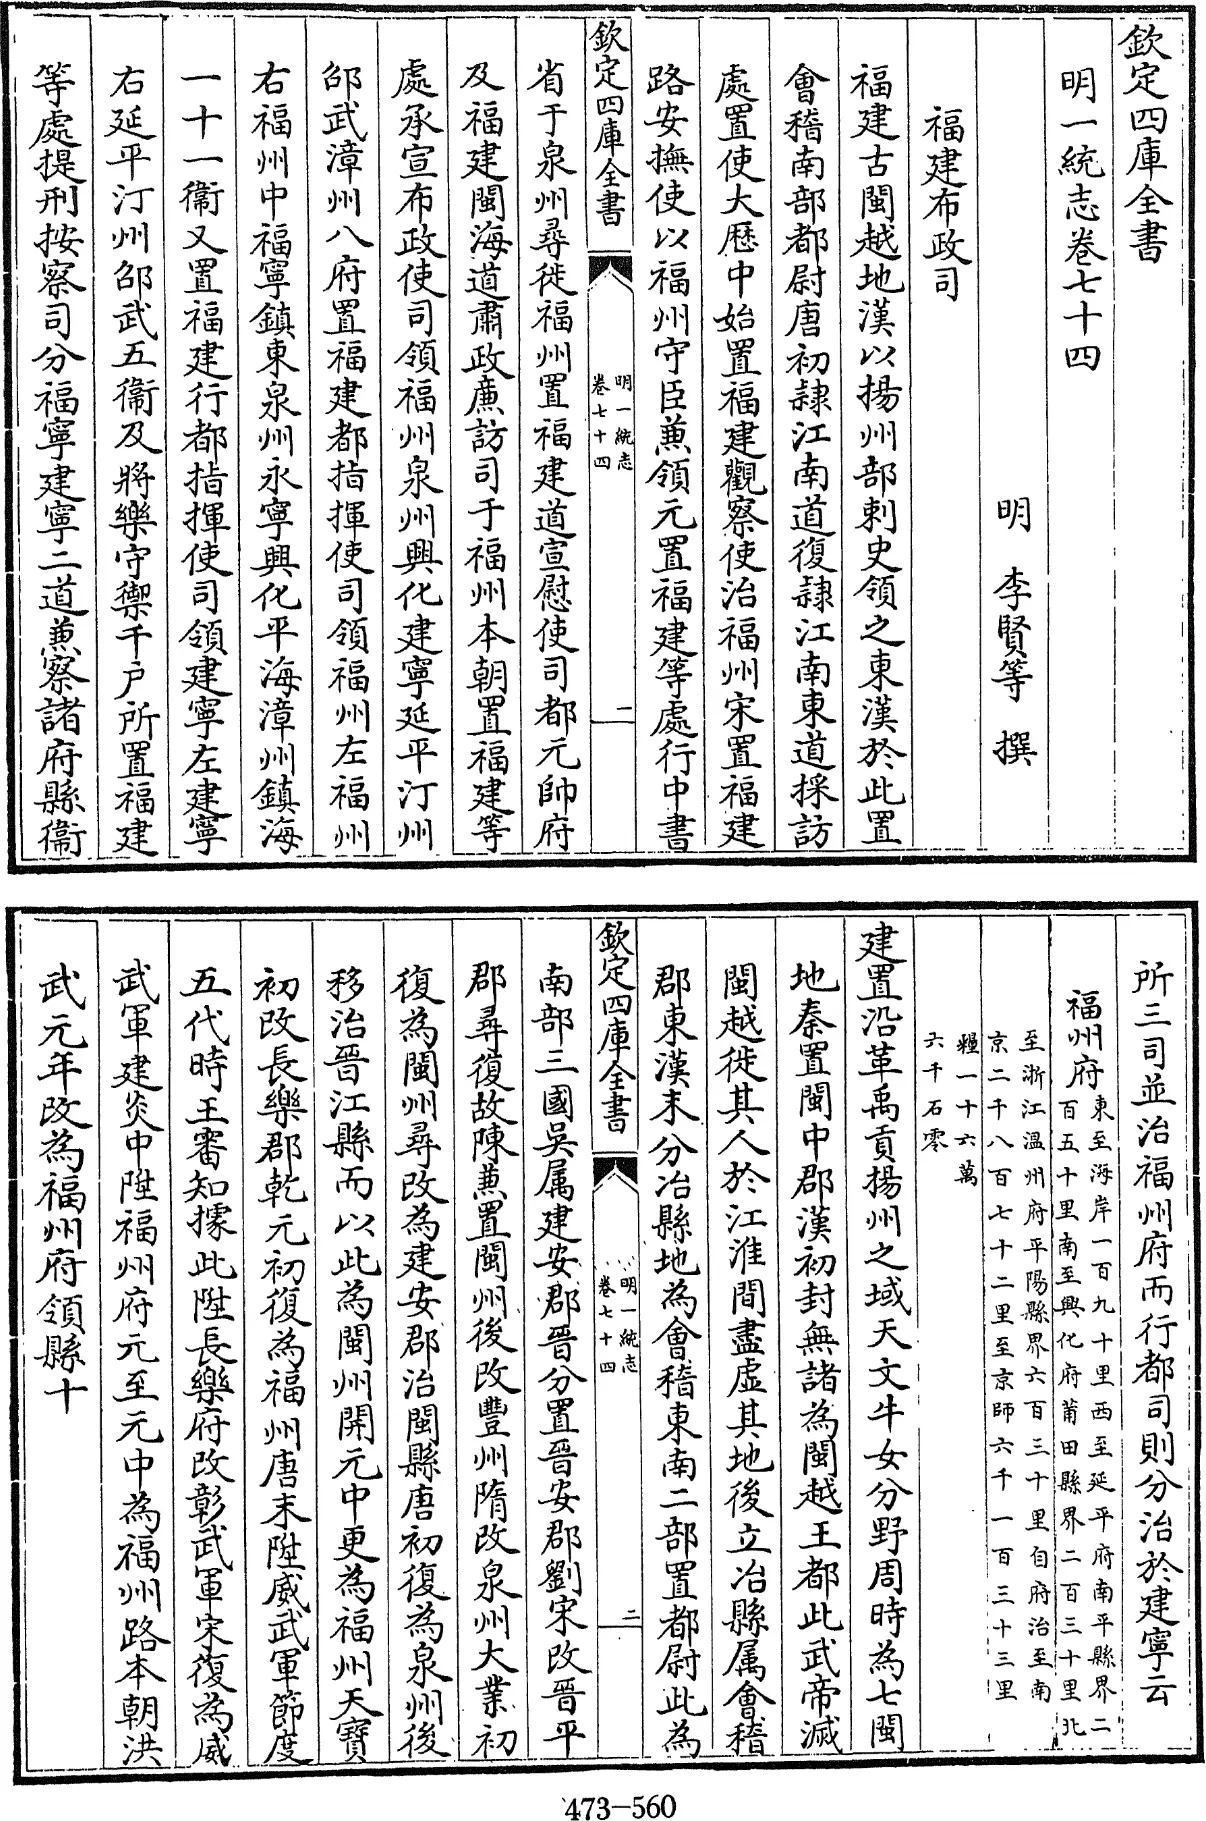 欽定四庫全書
明一統志卷七十四
明 李賢等 撰
福建布政司
福建古閩越地漢以揚州部刺史領之東漢於此置
會稽南部都尉唐初隷江南道復隷江南東道採訪
處置使大厯中始置福建觀察使治福州宋置福建
路安撫使以福州守臣兼領元置福建等處行中書
欽定四庫全書
明一統志
卷七十四
一
省于泉州尋徙福州置福建道宣慰使司都元帥府
及福建閩海道肅政廉訪司于福州本朝置福建等
處承宣布政使司領福州泉州興化建寧延平汀州
邵武漳州八府置福建都指揮使司領福州左福州
右福州中福寧鎮東泉州永寧興化平海漳州鎮海
一十一衞又置福建行都指揮使司領建寧左建寧
右延平汀州邵武五衞及將樂守禦千户所置福建
等處提刑按察司分福寧建寧二道兼察諸府縣衞
所三司並治福州府而行都司則分治於建寧云
福州府
東至海岸一百九十里西至延平府南平縣界二
百五十里南至興化府莆田縣界二百三十里北
至浙江溫州府平陽縣界六百三十里自府治至南
京二千八百七十二里至京師六千一百三十三里
糧一十六萬
六千石零
建置沿革禹貢揚州之域天文牛女分野周時為七閩
地秦置閩中郡漢初封無諸為閩越王都此武帝滅
閩越徙其人於江淮間盡虛其地後立冶縣属會稽
郡東漢末分冶縣地為會稽東南二部置都尉此為
欽定四庫全書
明一統志
卷七十四
二
南部三國吳属建安郡晉分置晉安郡劉宋改晉平
郡尋復故陳兼置閩州後改豐州隋改泉州大業初
復為閩州尋改為建安郡治閩縣唐初復為泉州後
移治晉江縣而以此為閩州開元中更為福州天寶
初改長樂郡乾元初復為福州唐末陞威武軍節度
五代時王審知據此陞長樂府改彰武軍宋復為威
武軍建炎中陞福州府元至元中為福州路本朝洪
武元年改為福州府領縣十
473-560